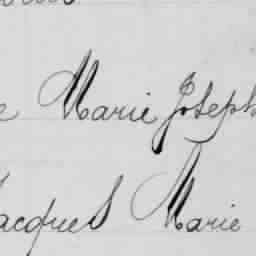 e Marie Joseph
Jacques Marie